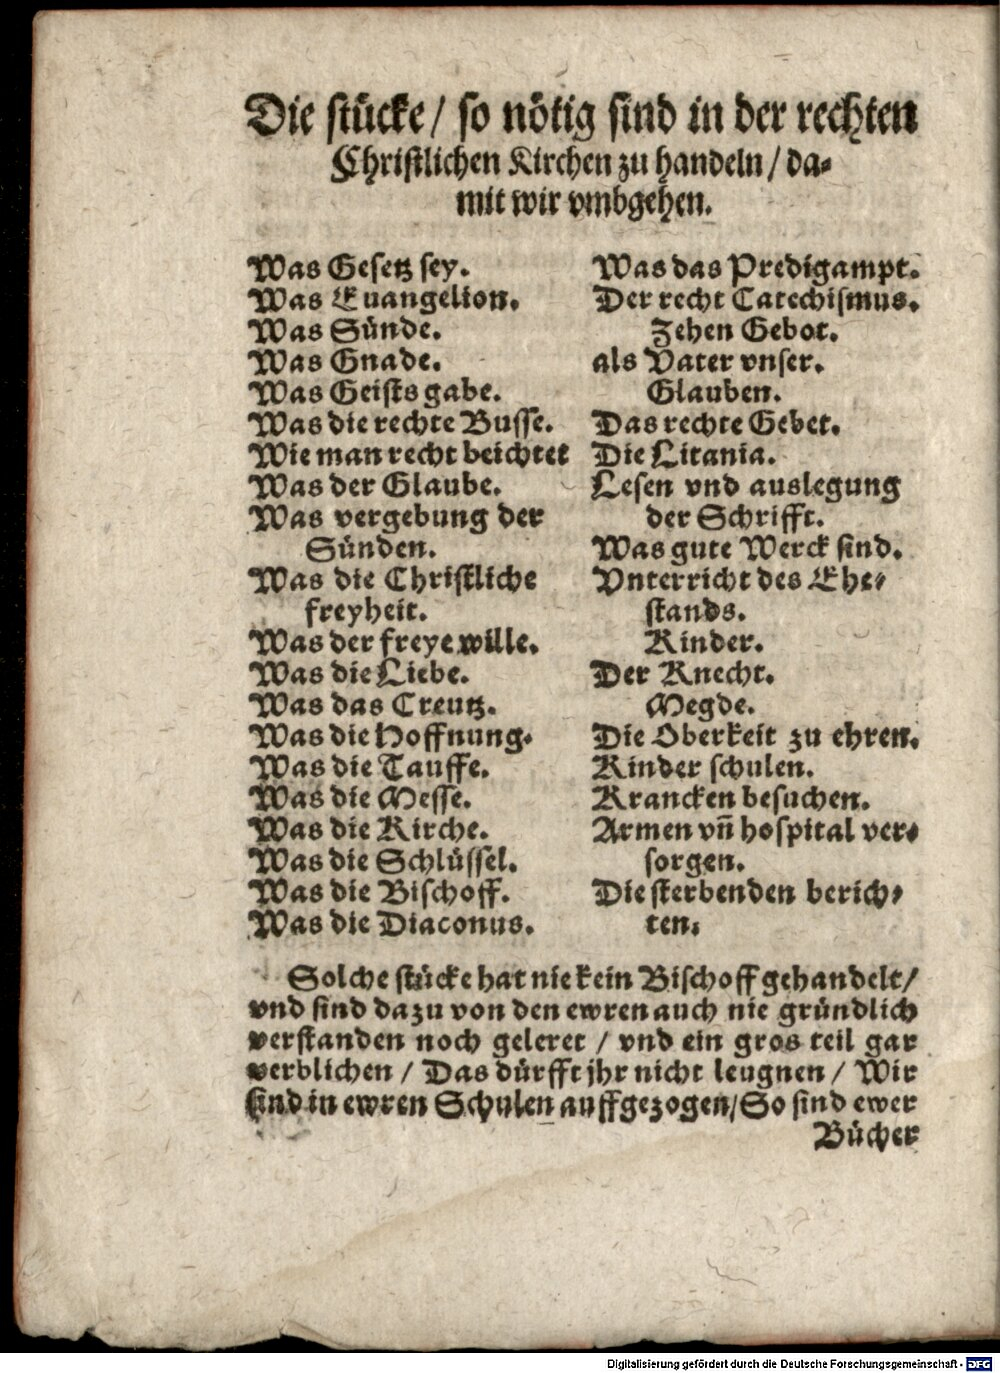 Die stücke / so nötig sind in der rechten
Christlichen Kirchen zu handeln / da-
mit wir vmbgehen.
Was Gesetz sey.
Was Euangelion.
Was Sünde.
Was Gnade.
Was Geists gabe.
Was die rechte Busse.
Wie man recht beichtet
Was der Glaube.
Was vergebung der
Sünden.
Was die Christliche
freyheit.
Was der freye wille.
Was die Liebe.
Was das Creutz.
Was die Hoffnung.
Was die Tauffe.
Was die Messe.
Was die Kirche.
Was die Schlüssel.
Was die Bischoff.
Was die Diaconus.
Was das Predigampt.
Der recht Catechismus.
Zehen Gebot.
als Vater vnser.
Glauben.
Das rechte Gebet.
Die Litania.
Lesen vnd auslegung
der Schrifft.
Was gute Werck sind.
Vnterricht des Ehe-
stands.
Kinder.
Der Knecht.
Megde.
Die Oberkeit zu ehren.
Kinder schulen.
Krancken besuchen.
Armen vn̄ hospital ver-
sorgen.
Die sterbenden berich-
ten.
Solche stücke hat nie kein Bischoff gehandelt /
vnd sind dazu von den ewren auch nie gründlich
verstanden noch geleret / vnd ein gros teil gar
verblichen / Das dürfft jhr nicht leugnen / Wir
sind in ewren Schulen auffgezogen / So sind ewer
Bücher
Digitalisierung gefördert durch die Deutsche Forschungsgemeinschaft - DFG